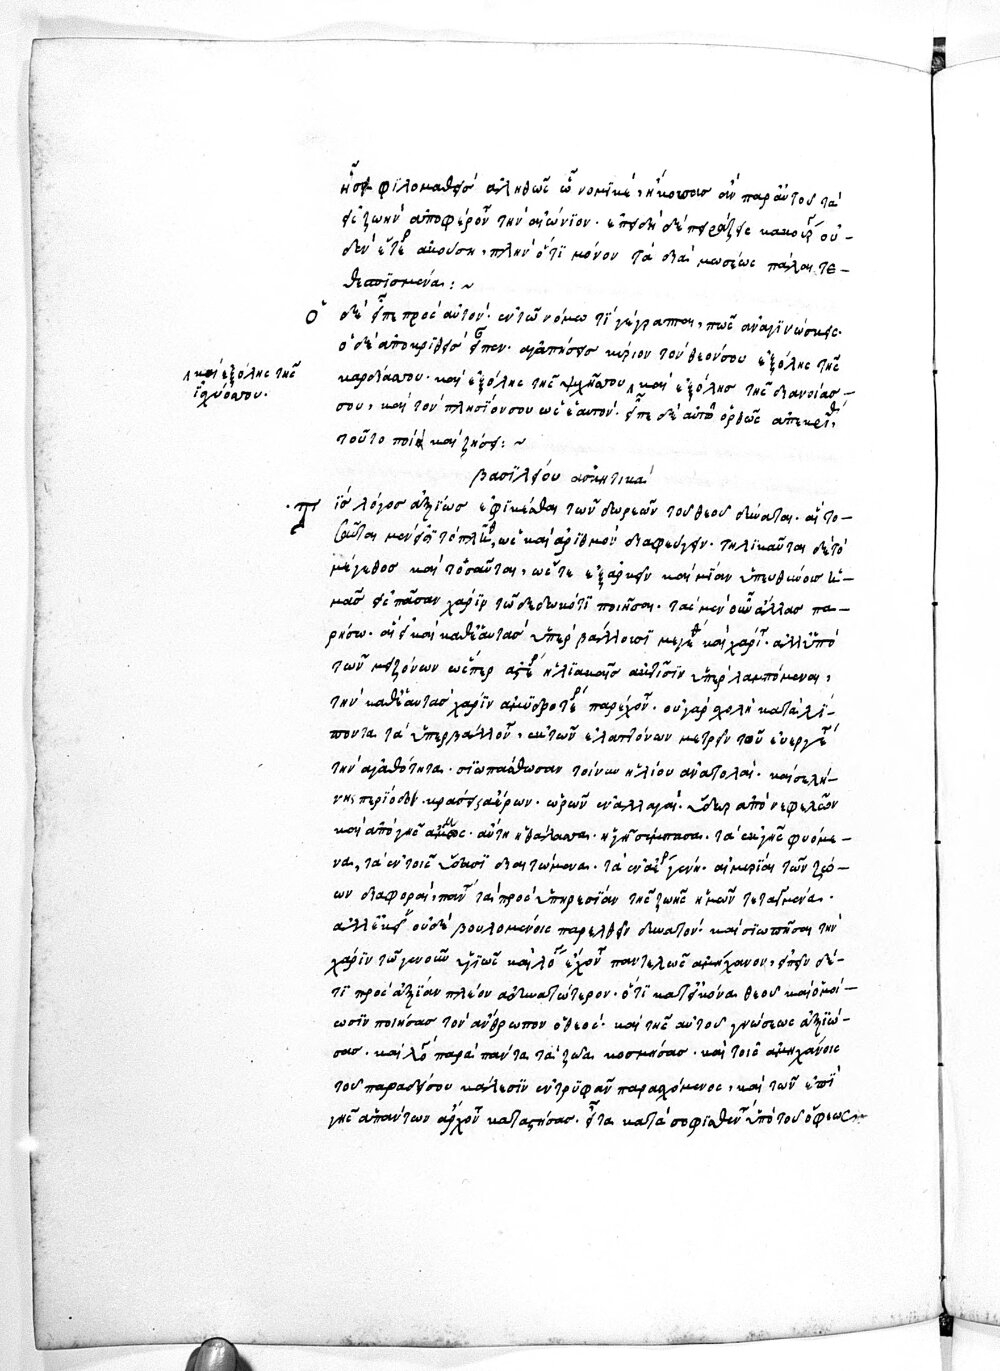 ἦς φιλομαθὴς ἀληθῶς ὦ νομικὲ, ἤκουσας ἂν παρ' αὐτοῦ τὰ
εἰς ζωὴν ἀποφέροντα τὴν αἰώνιον. ἐπειδὴ δὲ πειράζεις κακούργως οὐ-
δὲν ἕτερον ἀκούση, πλὴν ὅτι μόνον τὰ διὰ μωσέως πάλαι τε-
θεσπισμένα: ~
Ὁ δὲ εἶπε πρὸς αὐτόν· ἐν τῶ νόμω τί γέγραπται, πῶς ἀναγινώσκεις.
ὁ δὲ ἀποκριθεὶς εἶπεν· ἀγαπήσεις κύριον τὸν θεόν σου ἐξ ὅλης τῆς
καρδίας σου. καὶ ἐξ ὅλης τῆς ψυχῆς σου, καὶ ἐξ ὅλης τῆς διανοίας
καὶ ἐξ ὅλης τῆς
ἰσχύος σου.
σου, καὶ τὸν πλησίον σου ὡς ἑαυτόν. εἶπε δὲ αὐτῶ ὀρθῶς ἀπεκρίθης,
τοῦτο ποίει καὶ ζήσει: ~
βασιλείου ἀσκητικά
Τίς λόγος ἀξίως ἐφικέσθαι τῶν δωρεῶν τοῦ θεοῦ δύναται. αἳ το-
σαῦται μέν εἰσι τὸ πλῆθος, ὡς καὶ ἀριθμὸν διαφεύγειν. τηλικαῦται δὲ τὸ
μέγεθος καὶ τοσαῦται, ὥστε ἐξαρκεῖν καὶ μίαν ὑπευθύνους ἡ-
μᾶς εἰς πᾶσαν χάριν τῶ δεδωκότι ποιῆσαι. τὰς μὲν οὖν ἄλλας πα-
ρήσω. αἳ εἰ καὶ καθ' ἑαυτὰς ὑπερβάλλουσι μεγέθει καὶ χάριτι. ἀλλ' ὑπὸ
τῶν μειζόνων ὥσπερ ἀστέρες ἡλιακαῖς ἀκτῖσιν ὑπερλαμπόμεναι,
τὴν καθ' ἑαυτὰς χάριν ἀμυδροτέραν παρέχουσιν. οὐ γὰρ σχολὴ καταλι-
πόντα τὰ ὑπερβάλλοντα, ἐκ τῶν ἐλαττόνων μετρεῖν τοῦ εὐεργέτου
τὴν ἀγαθότητα. σιωπάσθωσαν τοίνυν ἡλίου ἀνατολαί. καὶ σελή-
νης περίοδοι. κράσεις ἀέρων. ὡρῶν ἐναλλαγαί. ὕδωρ ἀπὸ νεφελῶν
καὶ ἀπὸ γῆς ἄλλως. αὕτη ἡ θάλασσα. ἡ γῆ σύμπασα. τὰ ἐκ γῆς φυόμε-
να, τὰ ἐν τοῖς ὕδασι διαιτώμενα. τὰ ἐν ἀέρι γένη. αἱ μυρίαι τῶν ζώ-
ων διαφοραὶ, πάντα τὰ πρὸς ὑπηρεσίαν τῆς ζωῆς ἡμῶν τεταγμένα.
ἀλλ' ἐκεῖνο οὐδὲ βουλομένοις παρελθεῖν δυνατόν· καὶ σιωπῆσαι τὴν
χάριν τῶ γε νοῦν ὑγιῶς καὶ λόγον ἔχοντι παντελῶς ἀμήχανον, εἰπεῖν δέ
τι πρὸς ἀξίαν πλέον ἀδυνατώτερον. ὅτι κατ' εἰκόνα θεοῦ καὶ ὁμοί-
ωσιν ποιήσας τὸν ἄνθρωπον ὁ θεός· καὶ τῆς αὑτοῦ γνώσεως ἀξιώ-
σας. καὶ λόγω παρὰ πάντα τὰ ζῶα κοσμήσας. καὶ τοῖς ἀμηχάνοις
τοῦ παραδείσου κάλλεσιν ἐντρυφᾶν παρασχόμενος, καὶ τῶν ἐπὶ
γῆς ἁπάντων ἄρχοντα καταστήσας. εἶτα κατασοφισθέντα ὑπὸ τοῦ ὄφεως